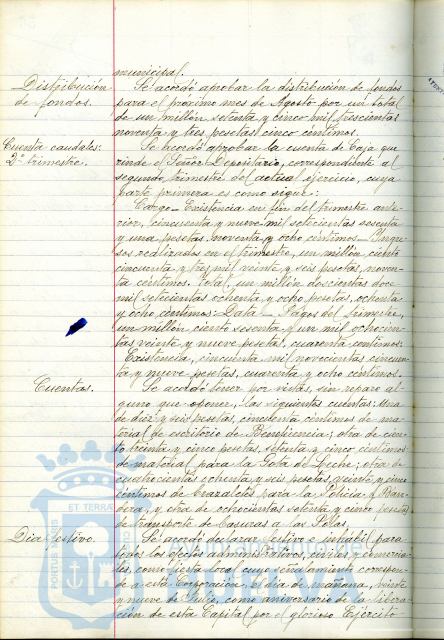 municipal.
Distribución
de fondos.
Se acordó aprobar la distribución de fondos
para el próximo mes de Agosto por un total
de un millón setenta y cinco mil trescientas
noventa y tres pesetas cinco céntimos.
Cuenta caudales:
2º trimestre.
Se acordó aprobar la cuenta de Caja que
rinde el Señor Depositario, correspondiente al
segundo trimestre del actual ejercicio, cuya
parte primera es como sigue:
Cargo = Existencia en fin del trimestre ante-
rior, cincuenta y nueve mil setecientas sesenta
y una pesetas, noventa y ocho céntimos = Ingre-
sos realizados en el trimestre, un millón ciento
cincuenta y tres mil veinte y seis pesetas, noven-
ta céntimos. Total, un millón doscientas doce
mil setecientas ochenta y ocho pesetas, ochenta
y ocho céntimos: Data = Pagos del trimestre,
un millón ciento sesenta y un mil ochocien-
tas veinte y nueve pesetas, cuarenta céntimos:
Existencia, cincuenta mil novecientas cincuen-
ta y nueve pesetas, cuarenta y ocho céntimos.
Cuentas.
Se acordó tener por vistas, sin reparo al-
guno que oponer, las siguientes cuentas: Una
de diez y seis pesetas, cincuenta céntimos de ma-
terial de escritorio de Beneficencia; otra de cien-
to treinta y cinco pesetas, setenta y cinco céntimos
de material para la Gota de Leche; otra de
cuatrocientas ochenta y seis pesetas, veinte y cinco
céntimos de brazaletes para la Policía y Ban-
dera, y otra de ochocientas setenta y cinco pesetas
de transporte de basuras a las Solas.
Día festivo.
Se acordó declarar festivo e inhábil para
todos los efectos administrativos, civiles y comercia-
les, como fiesta local cuyo señalamiento correspon-
de a esta Corporación el día de mañana, veinte
y nueve de Julio, como aniversario de la libera-
ción de esta Capital por el glorioso Ejército
ET TERRA
PORTUS